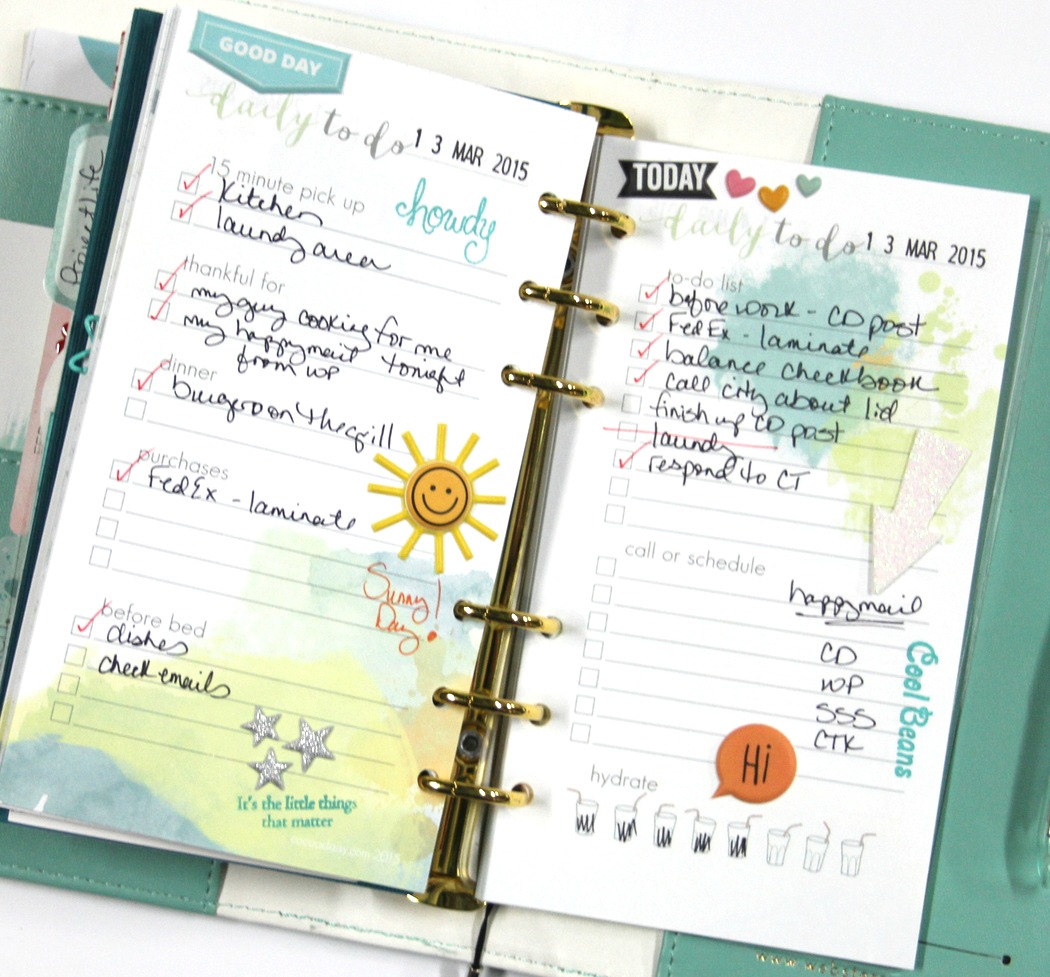 Project Life
GOOD DAY
daily to do 13 MAR 2015
15 minute pick up
howdy
kitchen
laundry area
thankful for
my guy cooking for me
my happymail tonight
from WP
dinner
burgers on the grill
purchases
FedEx - laminate
Sunny
Day!
before bed
dishes
check emails
It's the little things
that matter
TODAY
daily to do 13 MAR 2015
to-do list
before work - CD post
FedEx - laminate
balance checkbook
call city about lid
finish up CD post
laundry
respond to CT
call or schedule
happymail
CD
WP
SSS
CTK
Cool Beans
Hi
hydrate